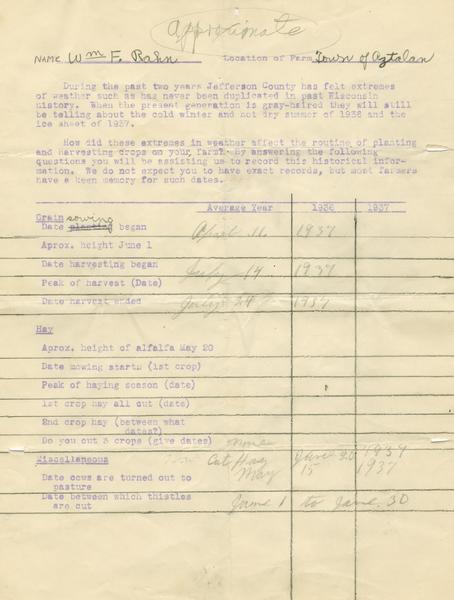 Approximate
NAME Wm F. Rahn Location of Farm Town of Aztalan
During the past two years Jefferson County has felt extremes
of weather such as has never been duplicated in past Wisconsin
history. When the present generation is gray-haired they will still
be telling about the cold winter and hot dry summer of 1936 and
the ice sheet of 1937.
How did these extremes in weather affect the routine of planting
and harvesting crops on your farm? By answering the following
questions you will be assisting us to record this historical infor-
mation. We do not expect you to have exact records, but most farmers
have a keen memory for such dates.
Average Year 1936 1937
Grain sowing
Date planting began April 11 1937
Aprox. height June 1
Date harvesting began July 14 1937
Peak of harvest (Date)
Date harvest ended July 24 1937
Hay
Aprox. height of alfalfa May 20
Date mowing starts (1st crop)
Peak of haying season (date)
1st crop hay all cut (date)
2nd crop hay (between what
dates?)
Do you cut 3 crops (give dates) none
Miscellaneous Cut Hay June 20 1937
Date cows are turned out to May 15 1937
pasture
Date between which thistles
are cut June 1 to June 30